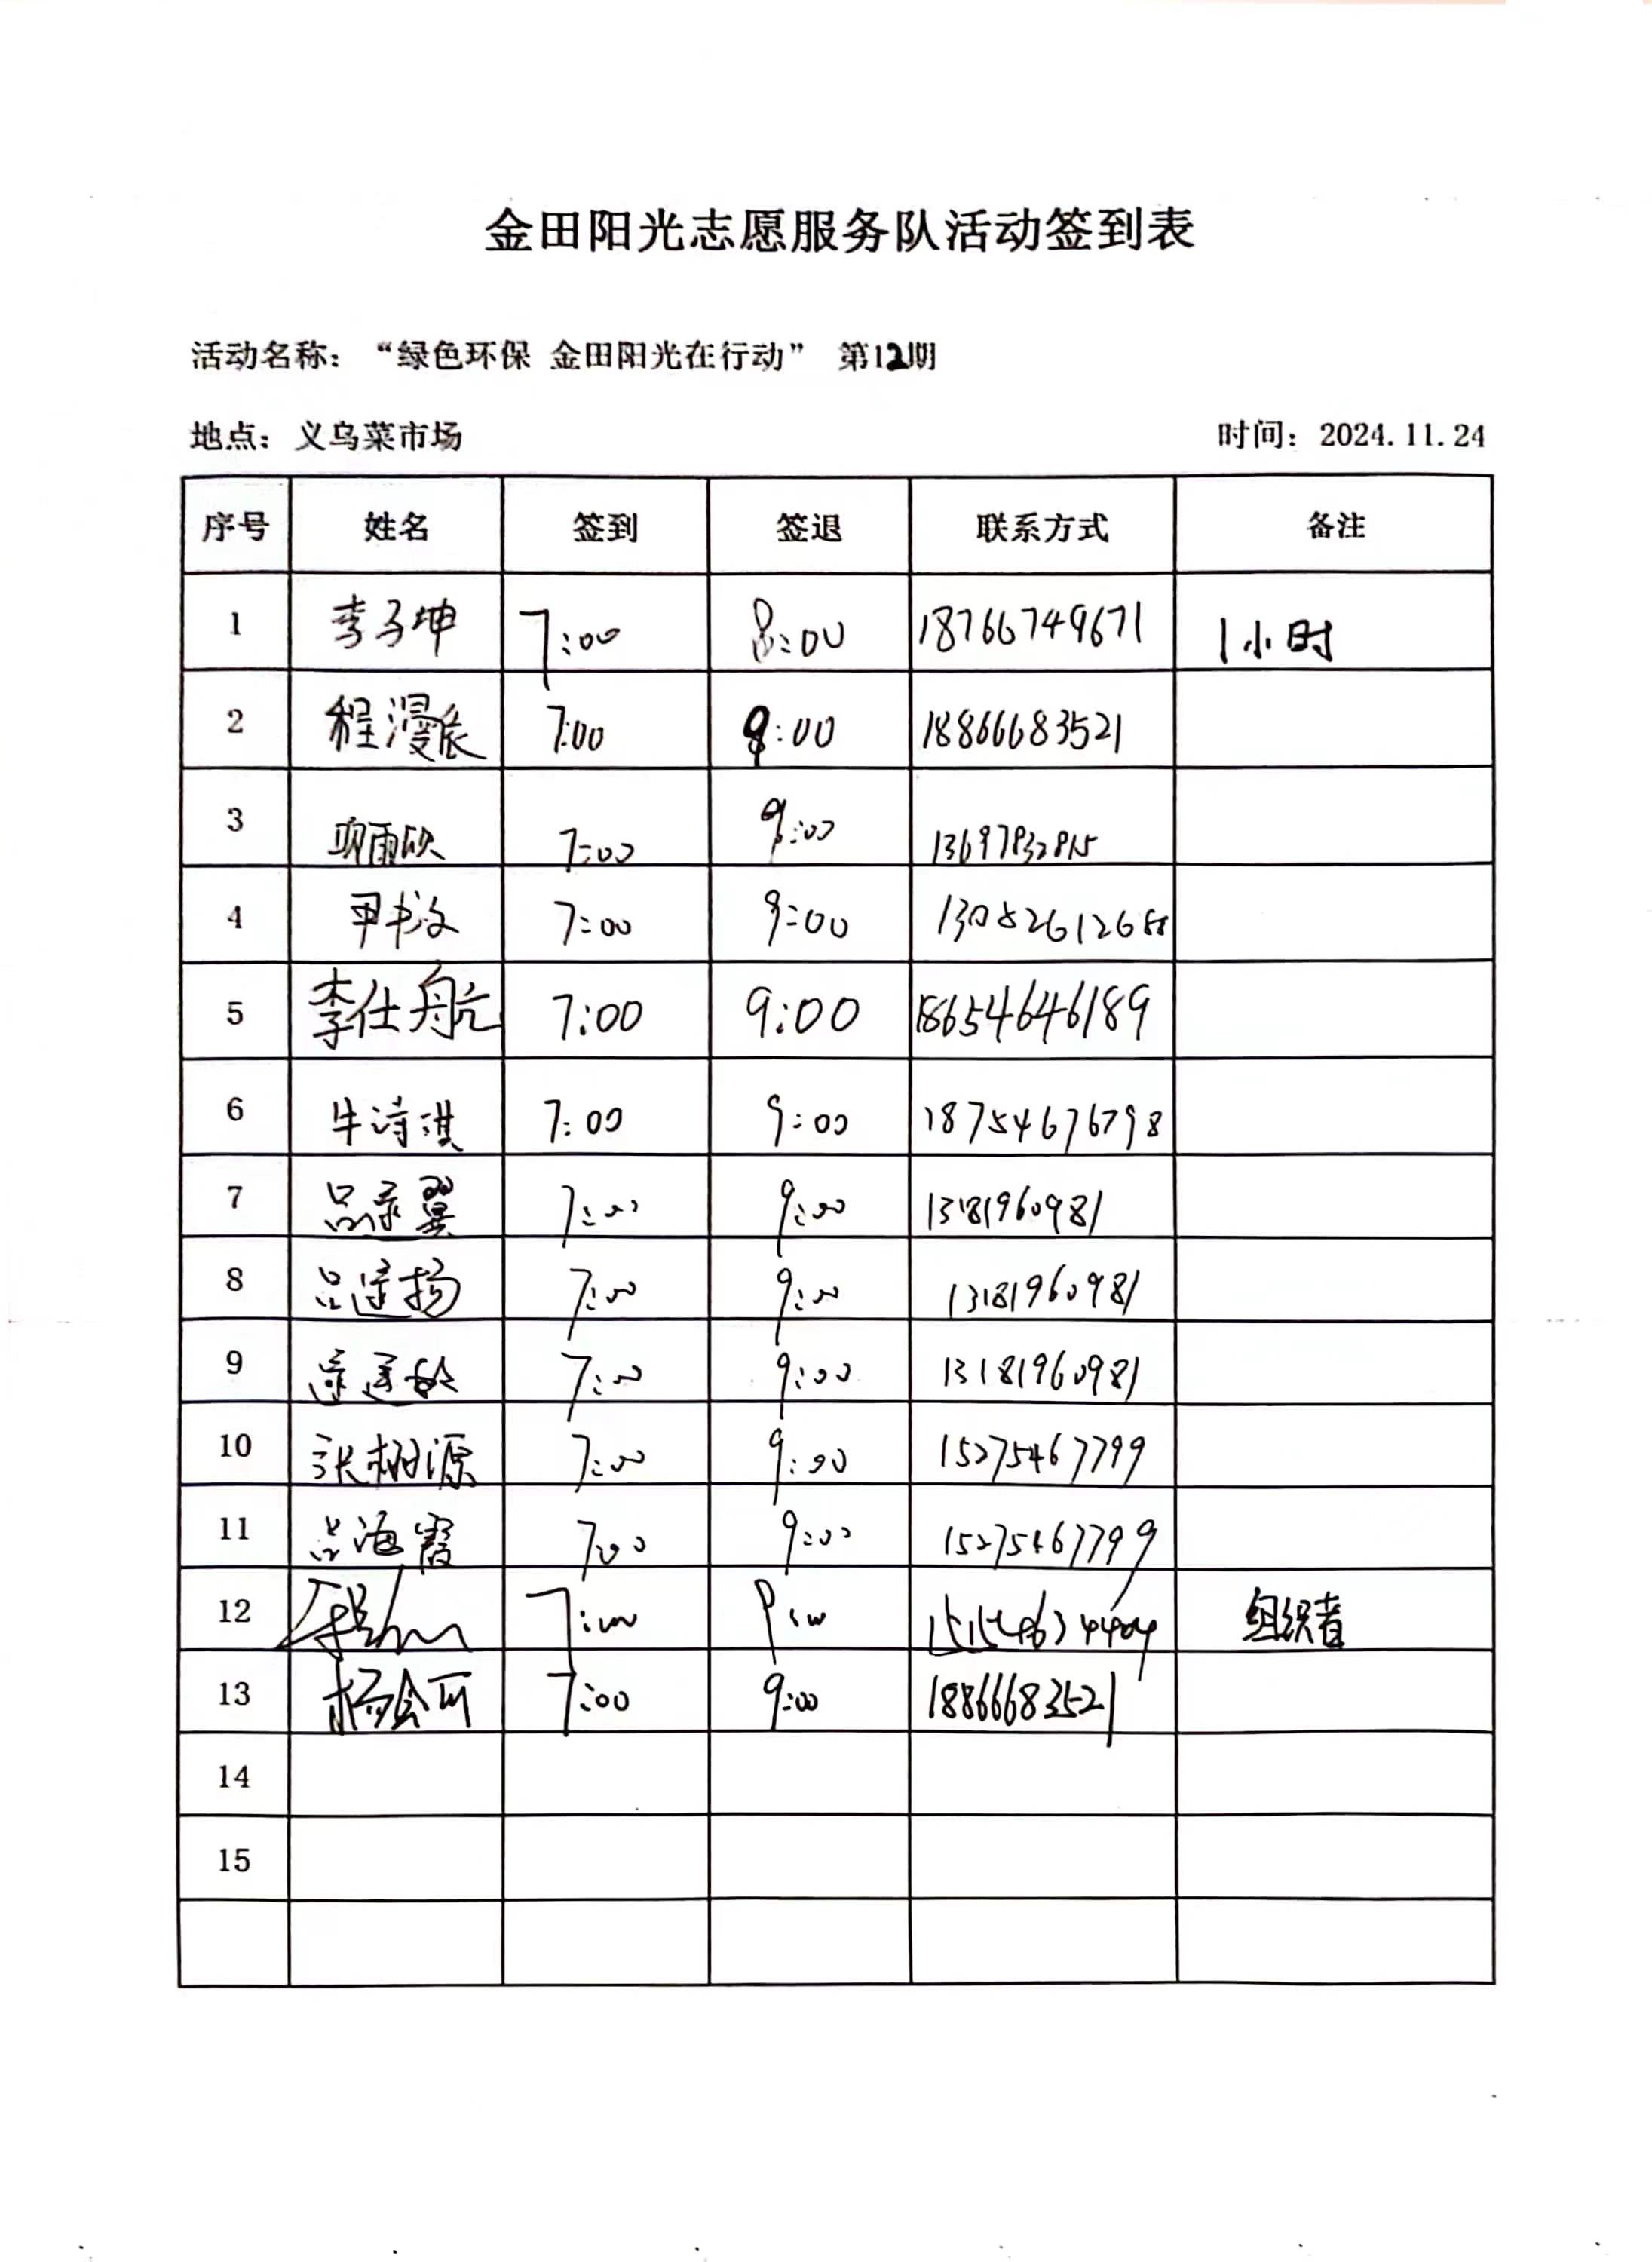 金田阳光志愿服务队活动签到表
活动名称：“绿色环保 金田阳光在行动” 第12期
地点：义乌菜市场 时间：2024.11.24
序号 姓名 签到 签退 联系方式 备注
1 李子坤 7:00 8:00 18766749671 1小时
2 程漫 7:00 9:00 18866683521
3 雨欣 7:00 9:00
4 7:00 9:00
5 李仕航 7:00 9:00 18654646189
6 牛诗淇 7:00 9:00 18754676798
7 翼 7:00 9:00 13181960981
8 扬 7:00 9:00 13181960981
9 7:00 9:00 13181960981
10 张栩源 7:00 9:00 15275467799
11 吕海霞 7:00 9:00 15275467799
12 7:00 9:00 组织者
13 杨会可 7:00 9:00 18866683521
14
15